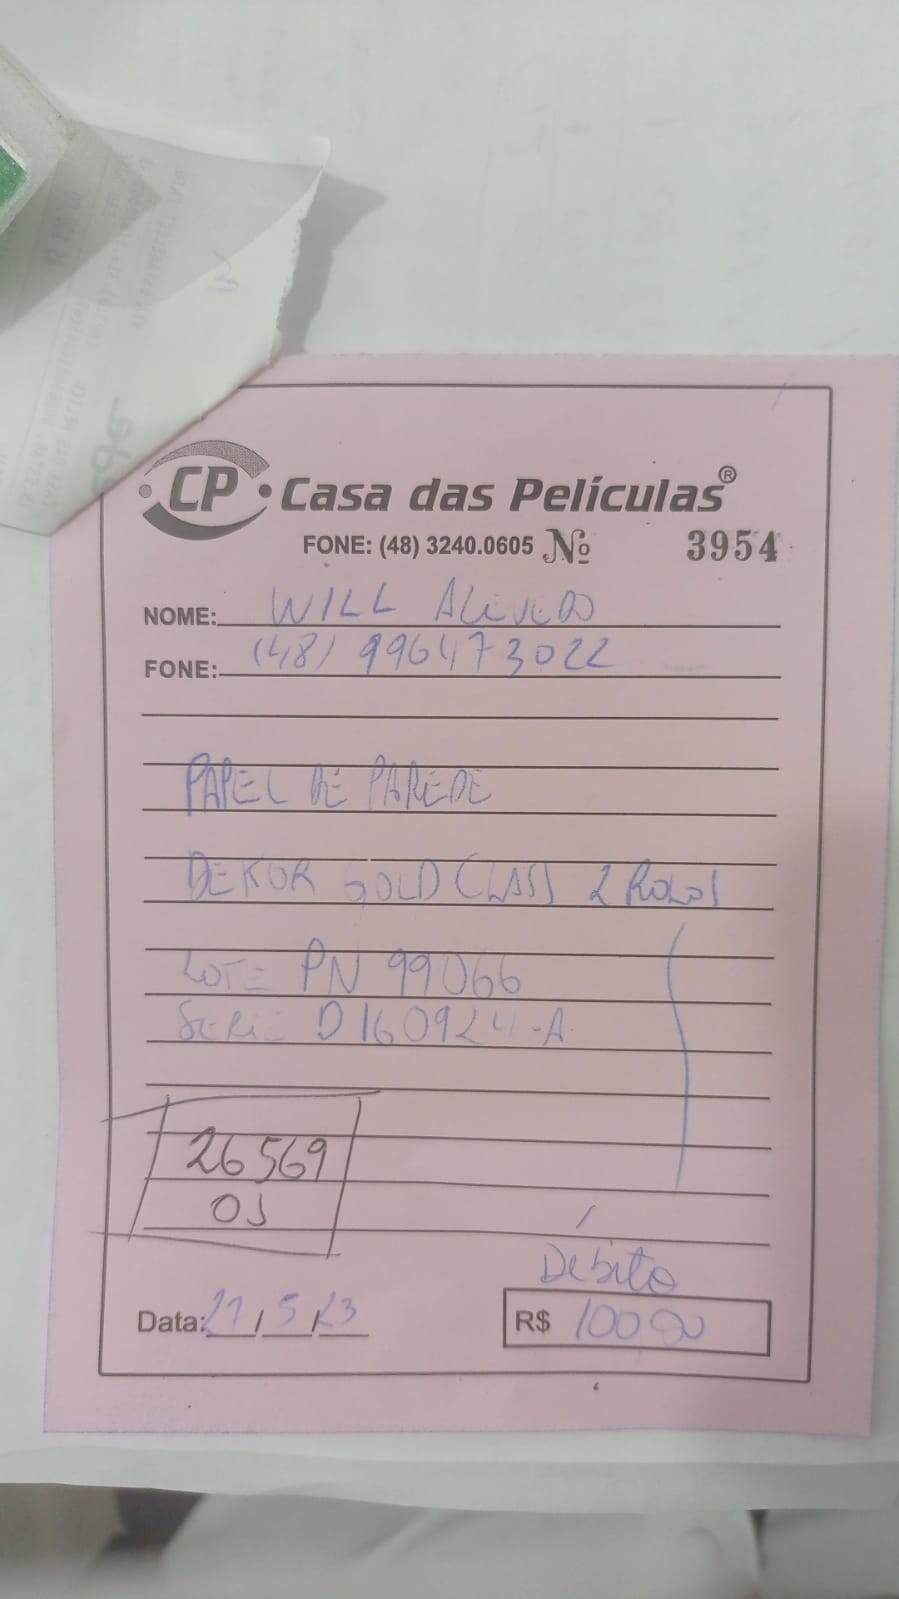 CP Casa das Películas®
FONE: (48) 3240.0605 Nº 3954
NOME: WILL AZEVEDO
FONE: (48) 996473022
PAPEL DE PAREDE
DEKOR GOLD CLASS 2 ROLOS
LOTE PN 99066
SERIE D160924-A
26569
OS
Débito
Data: 27/5/23 R$ 100,00